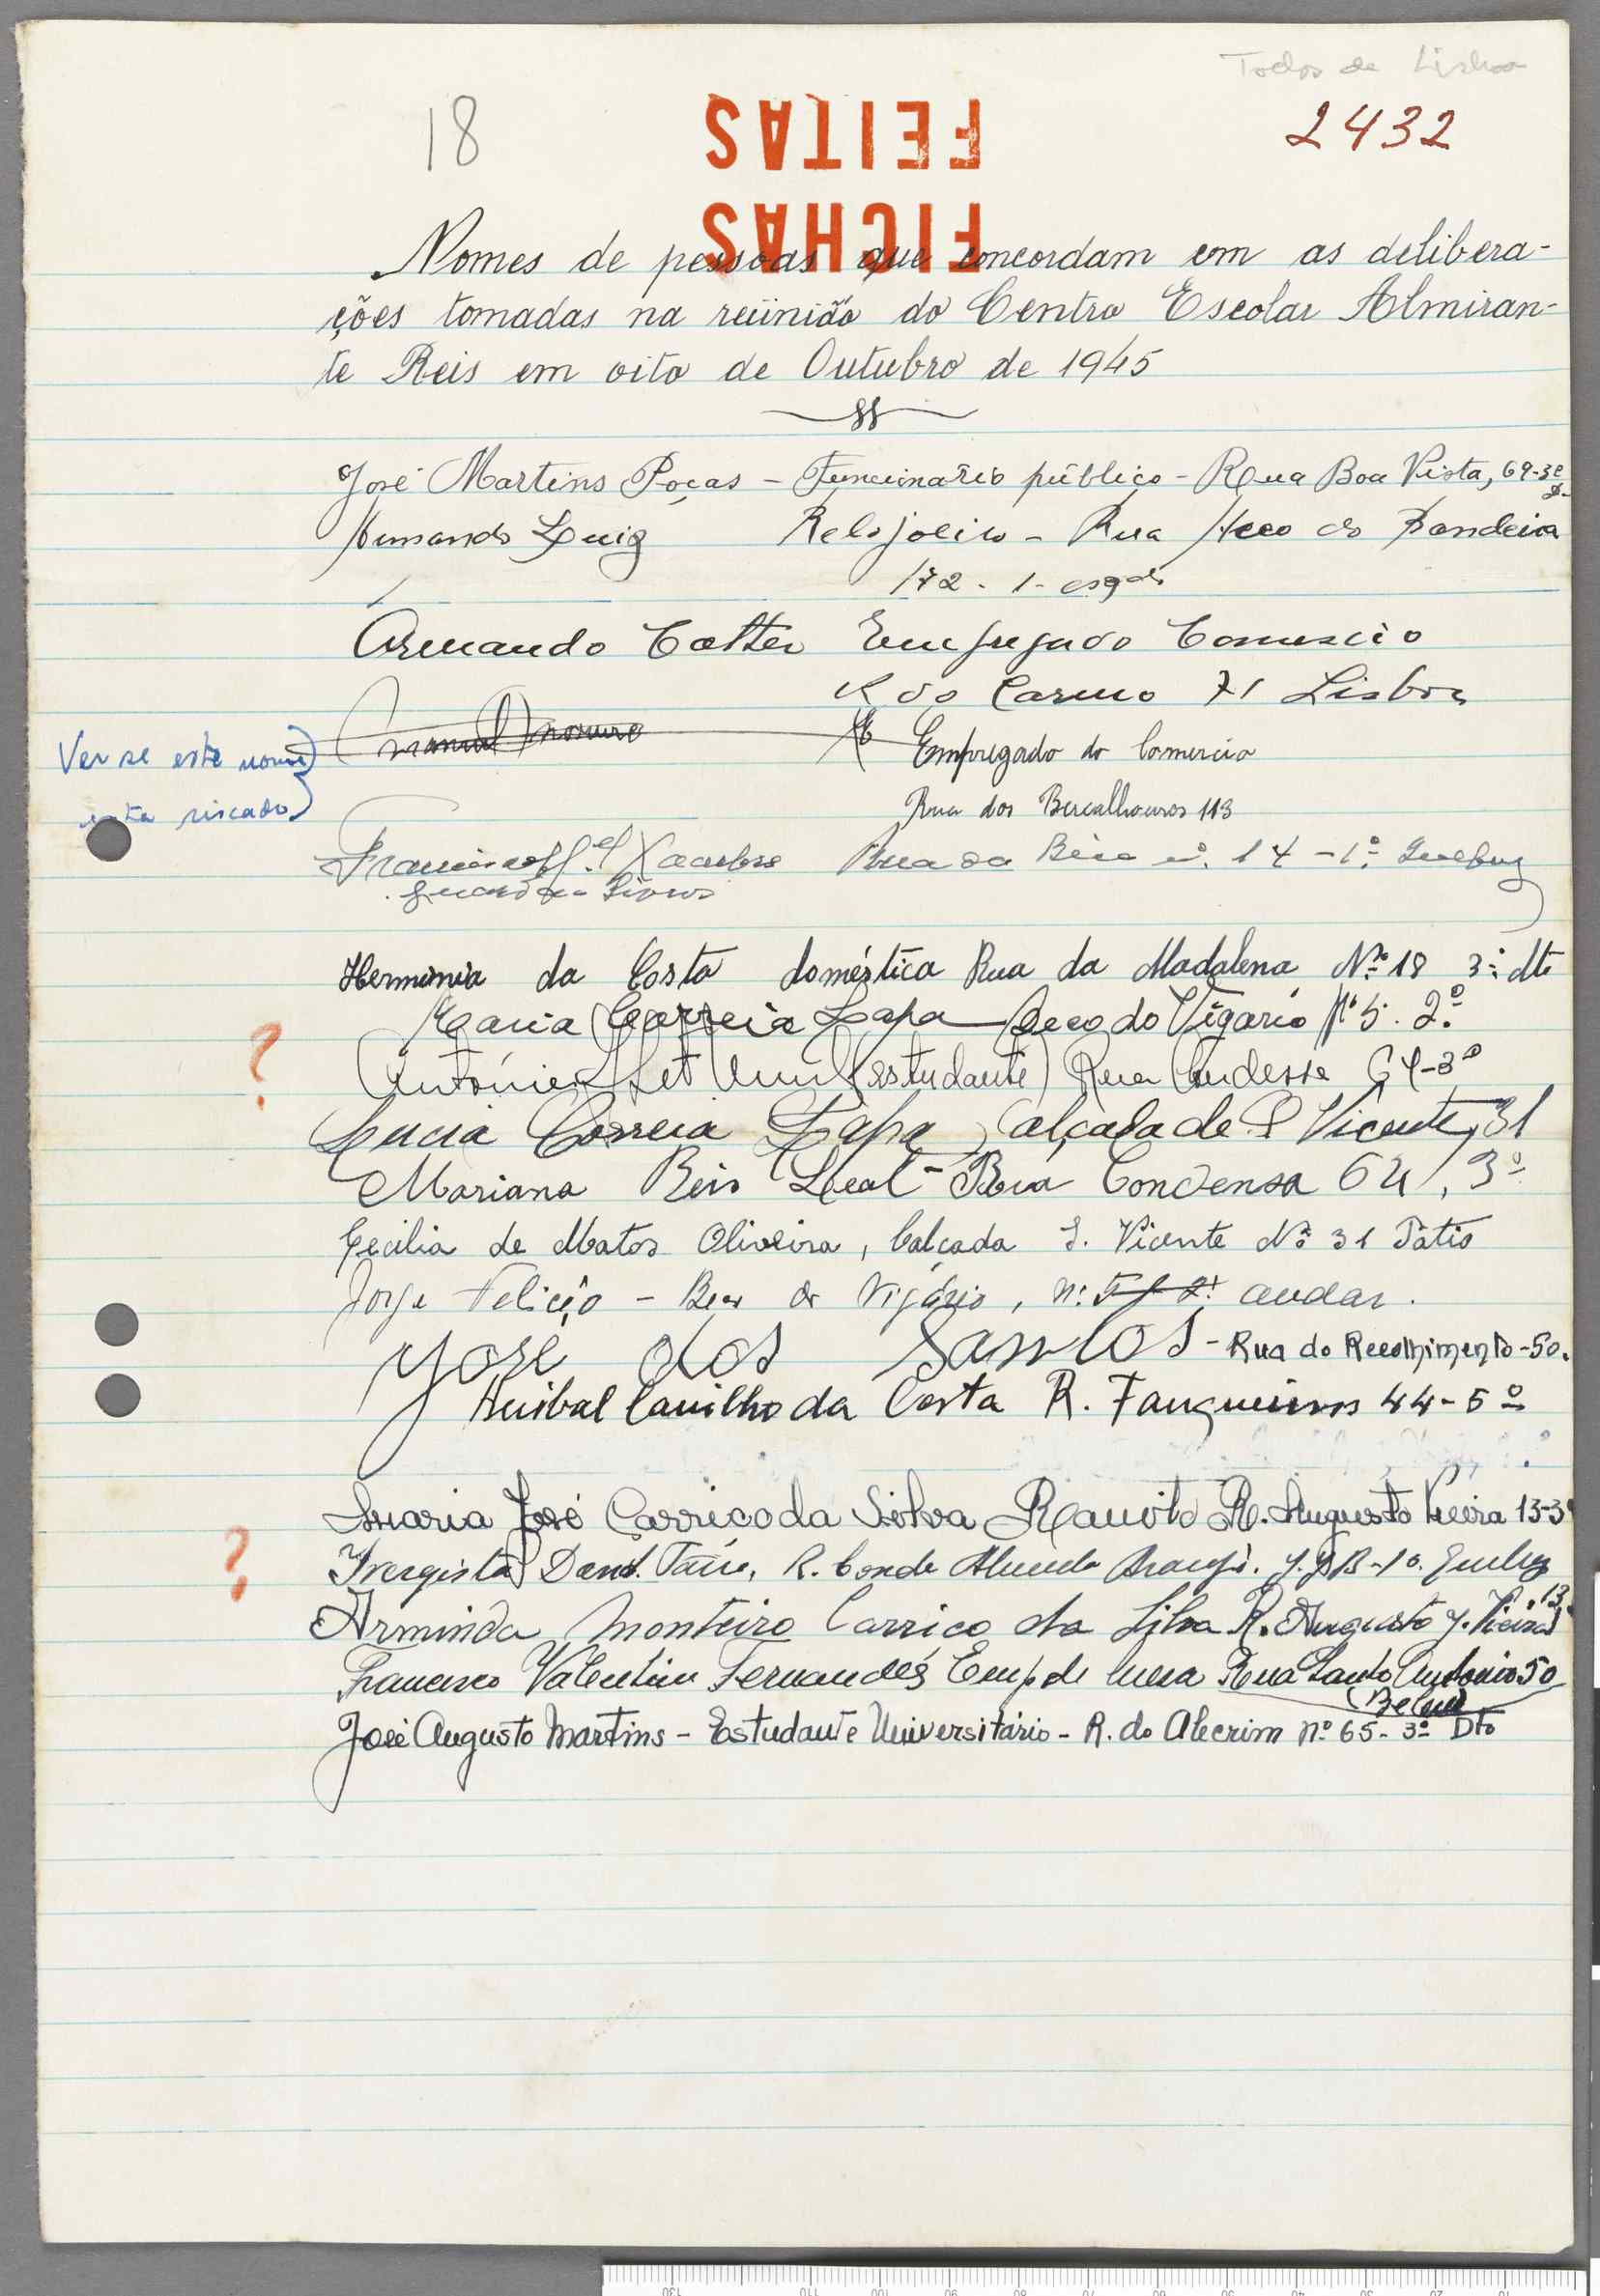 Todos de Lisboa
18
2432
FICHAS
FEITAS
Nomes de pessoas que concordam com as delibera-
ções tomadas na reünião do Centro Escolar Almiran-
te Reis em oito de Outubro de 1945
José Martins Poças - Funcionário público - Rua Boa Vista, 69-3º
Relojoeiro - Rua do Bandeira
172 - 1 - esqdo
Armando Empregado Comercio
R do Carmo 71 Lisboa
Ver se este nome
Manuel
Empregado do Comercio
está riscado
Rua dos Bacalhoeiros 113
Francisco Rua da nº. 14 - 1º.
guarda Livros
Herminia da Costa doméstica Rua da Madalena Nº 18 3º. dto
Maria Correia Lapa Beco do Vigario Nº 5. 2º.
?
António (estudante) Rua Condessa 64-3º
Lucia Correia Lapa, Calçada de S Vicente, 31
Mariana Reis Leal - Rua Condensa 64, 3º
Cecilia de Matos Oliveira, Calçada S. Vicente Nº 31 Pátio
Jorge Felicio - Beco do Vigário, nº. 5 andar.
José dos Santos - Rua do Recolhimento - 50.
Anibal Canilho da Costa R. Fanqueiros 44 - 5º
Maria José Carrico da Silva R. Augusto Vieira 13-3º
?
R. Conde
Arminda Monteiro Carrico da Silva R. Augusto J. Vieira 13
Francisco Valentim Fernandes Emp de mesa Rua Santo Antonio 50
Belem
José Augusto Martins - Estudante Universitário - R. do Alecrim nº 65 - 3º Dto